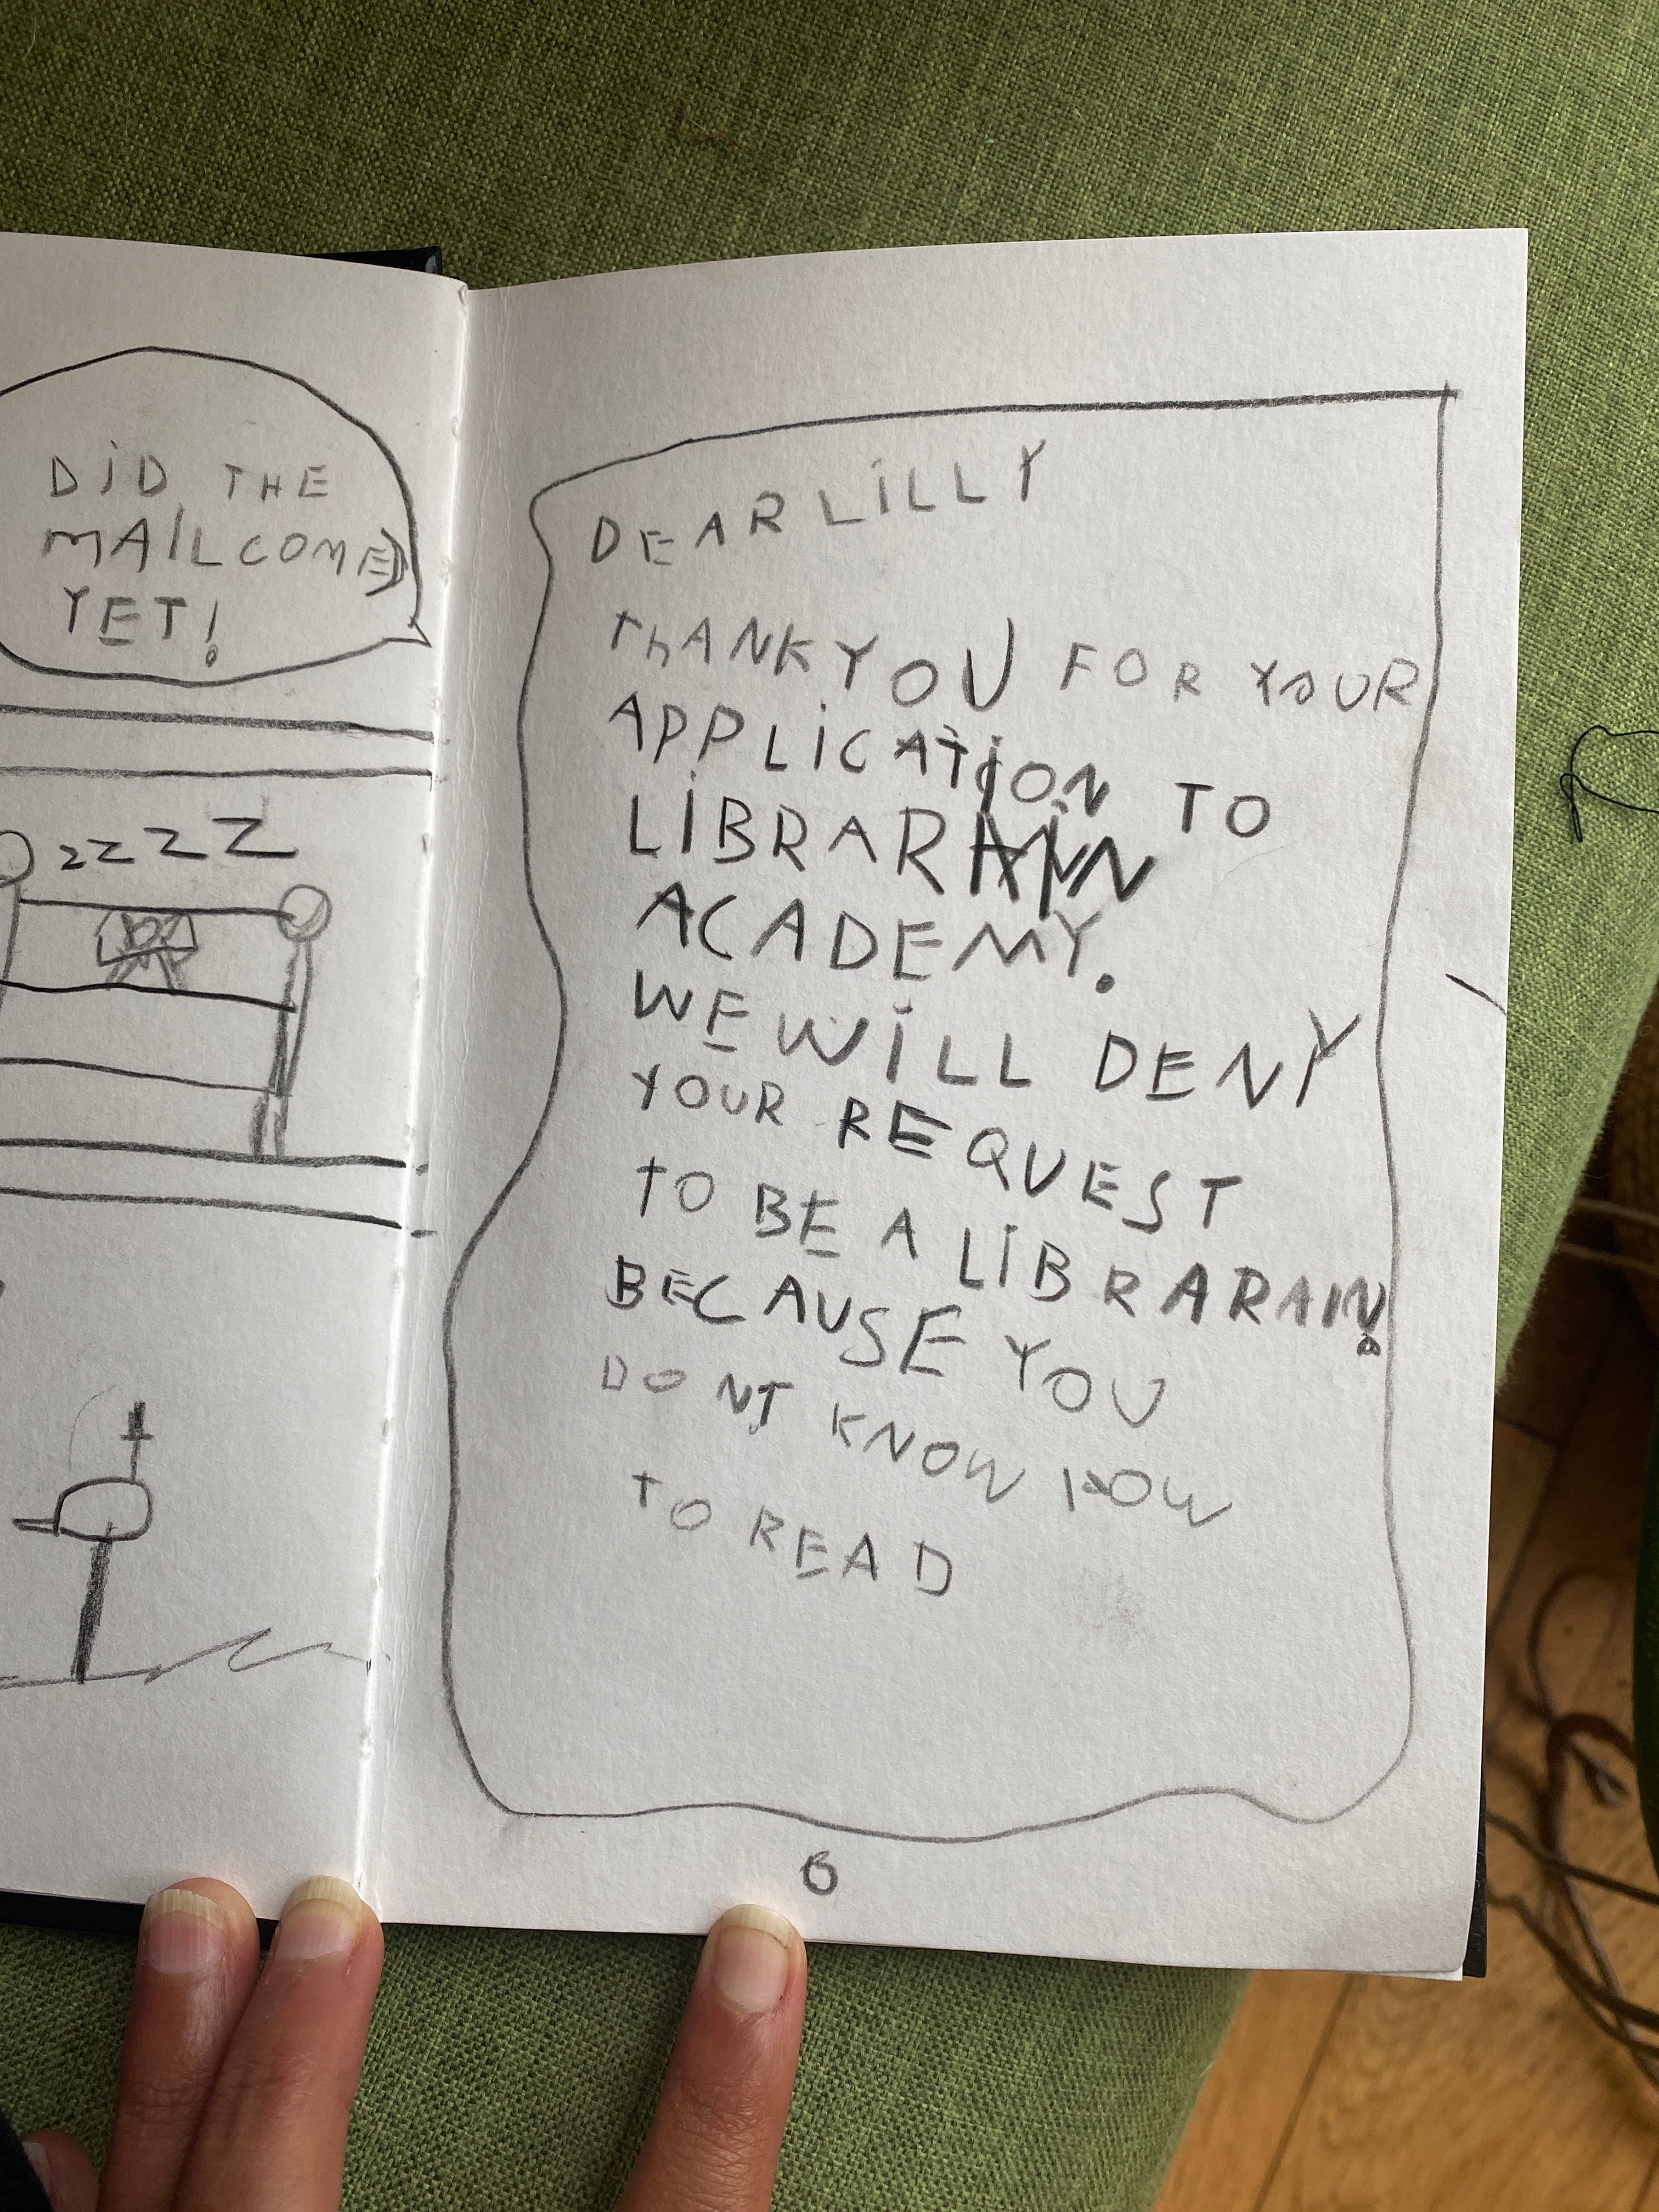 DID THE
MAIL COME
YET!
zzzZ
DEAR LILLY
ThANK YOU FOR YOUR
APPLICATION TO
ACADEMY.
WE WILL DENY
YOUR REQUEST
TO BE A LIBRARAIN.
BECAUSE YOU
DONT KNOW HOW
TO READ
6